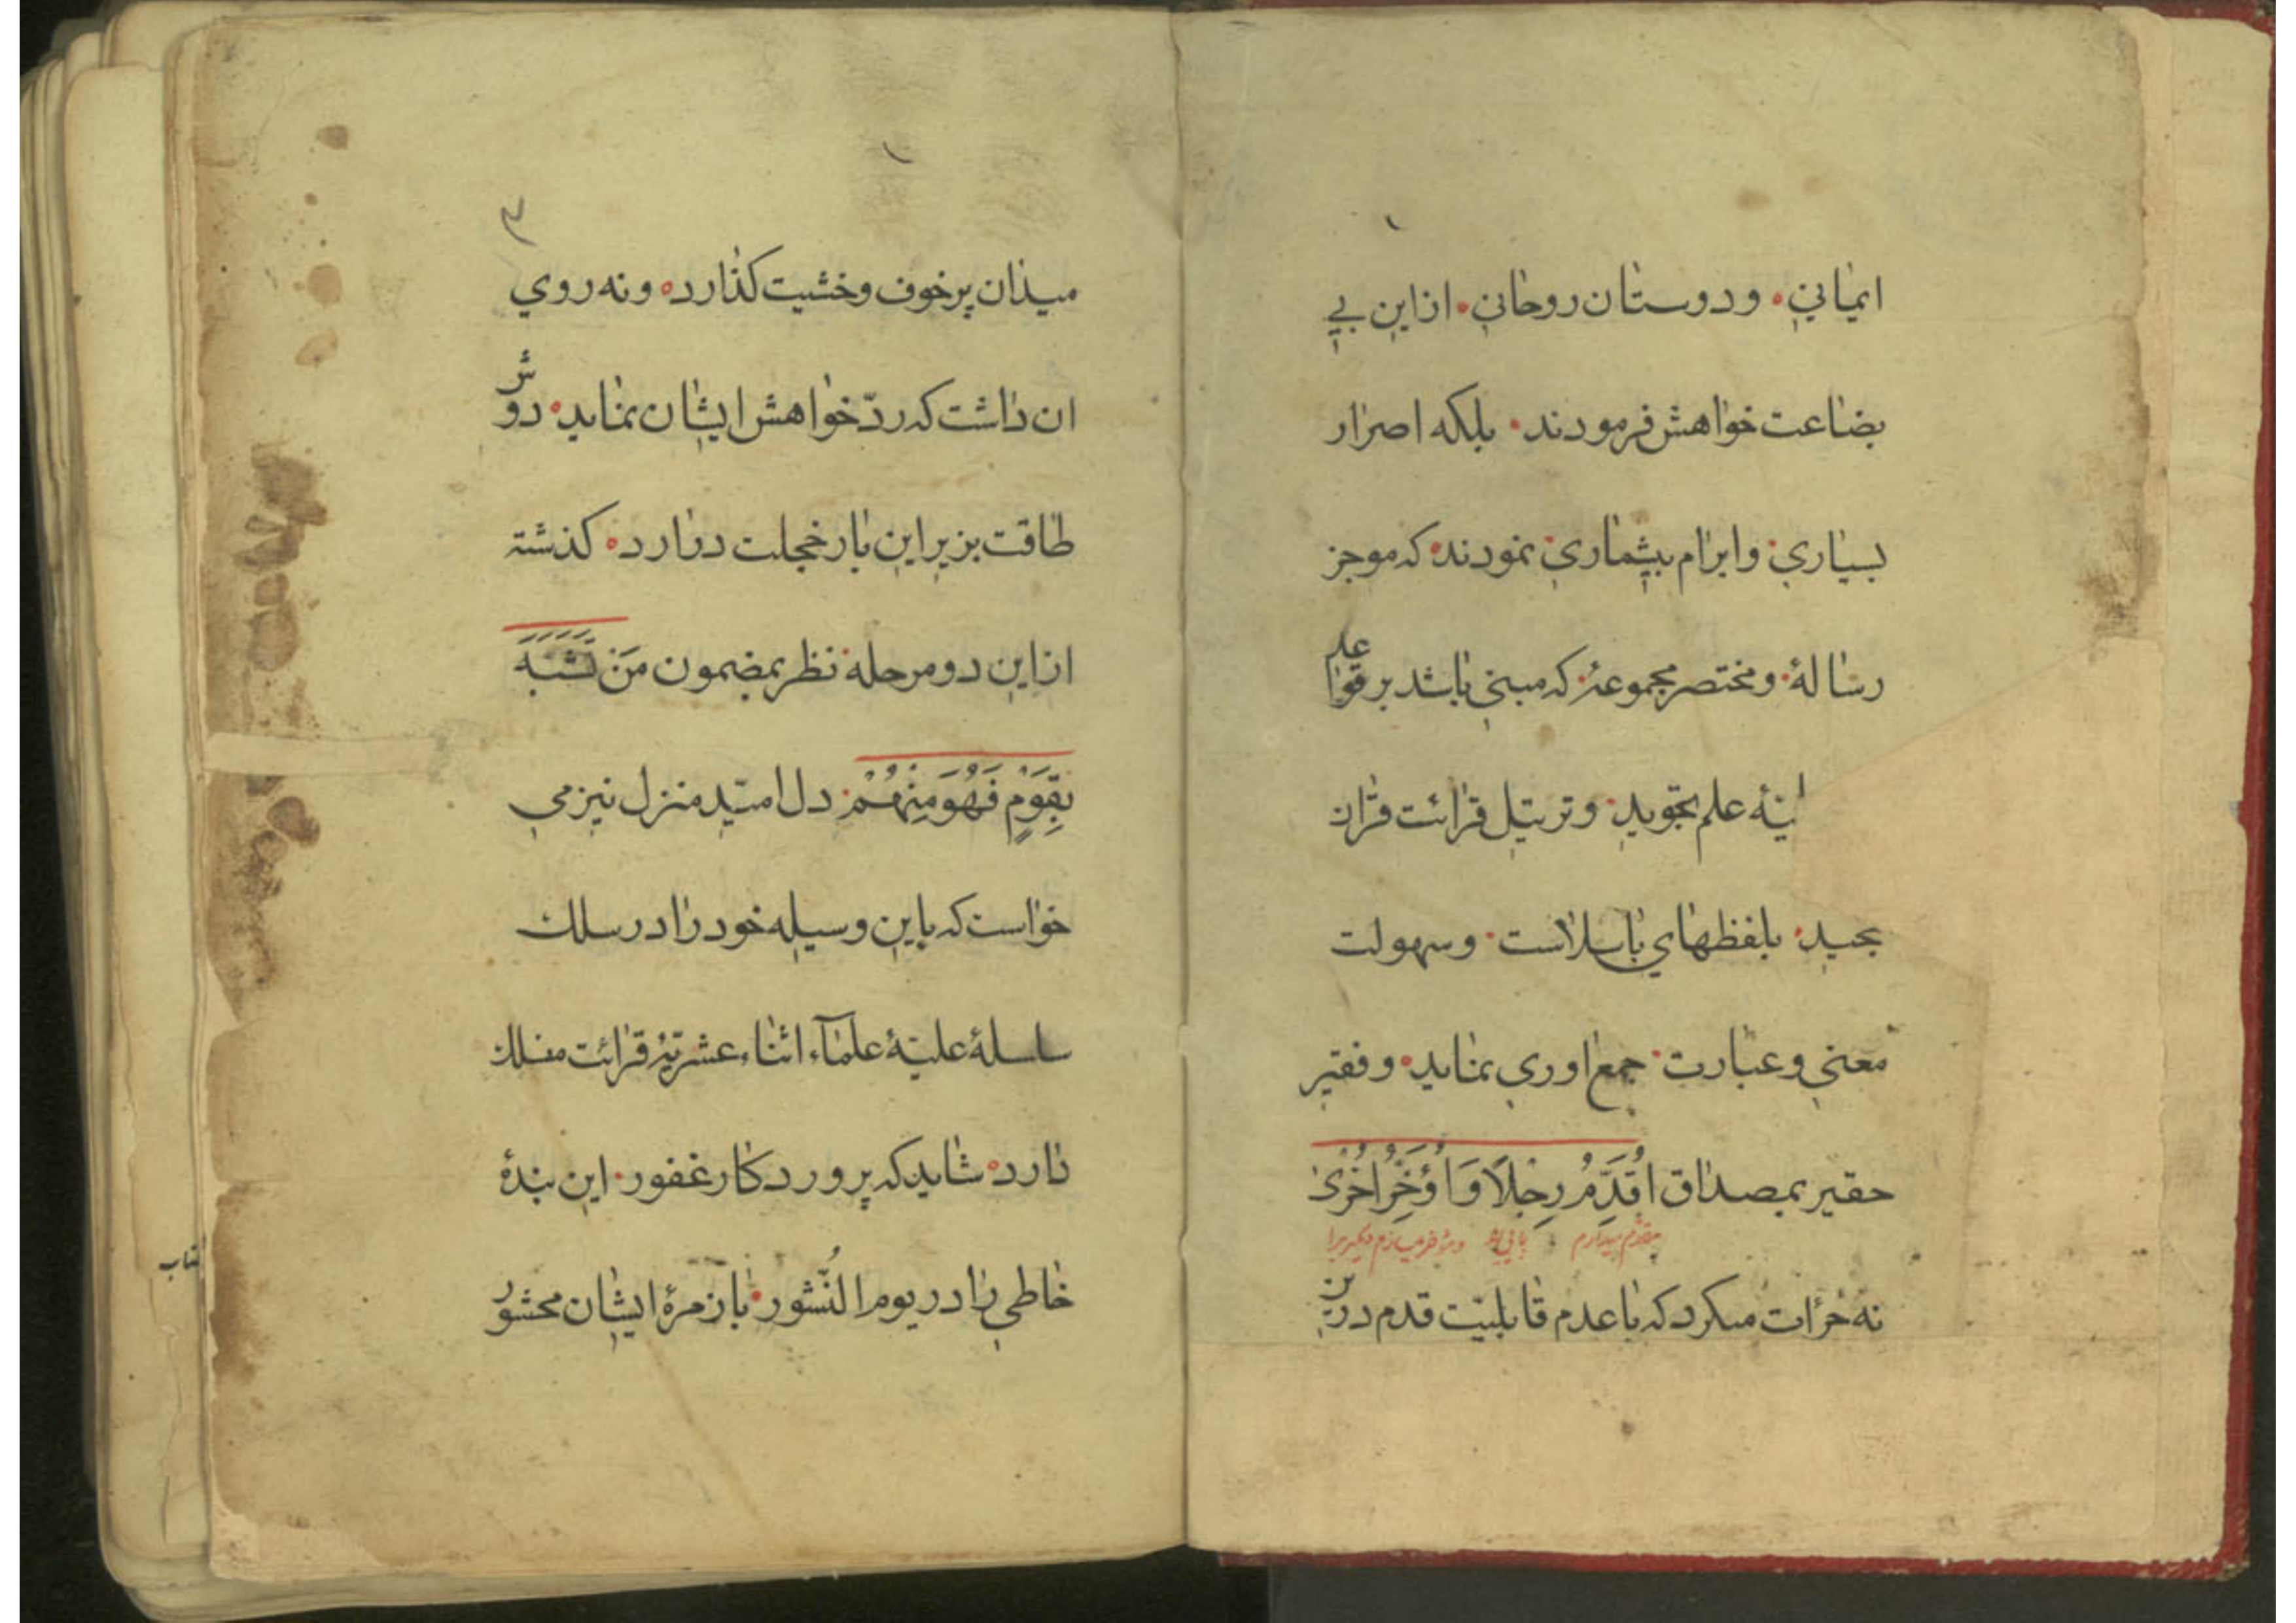 ایمانی ۰ و دوستان روحانی ۰ از این بی
بضاعت خواهش فرمودند ۰ بلکه اصرار
بسیاری و ابرام بیشماری نمودند که موجز
رسالهٔ و مختصر مجموعهٔ که مبنی باشد بر قواعد
علم تجوید و ترتیل قرائت قرآن
مجید بلفظهای با سلاست و سهولت
معنی و عبارت جمع اوری نماید ۰ و فقیر
حقیر بمصداق اُقَدِّمُ رِجْلًا وَ اُؤَخِّرُ اُخْرىٰ
مقدم میدارم پائی را و مؤخر میسازم دیگریرا
نه جرأت میکرد که با عدم قابلیّت قدم در این
۳
میدان پر خوف و خشیت کذارد ۰ و نه روی
ان داشت که ردّ خواهش ایشان نماید ۰ دوش
طاقت بزیر این بار خجلت در ارد ۰ کذشته
از این دو مرحله نظر بمضمون مَنْ تَشَبَّهَ
بِقَوْمٍ فَهُوَ مِنْهُمْ دل امید منزل نیز می
خواست که باین وسیله خود را در سلك
سلسلهٔ علیّهٔ علمآء اثناء عشریّهٔ قرائت منسلك
دارد ۰ شاید که پروردکار غفور این بندهٔ
خاطی را در یوم النُّشور با زمرهٔ ایشان محشور